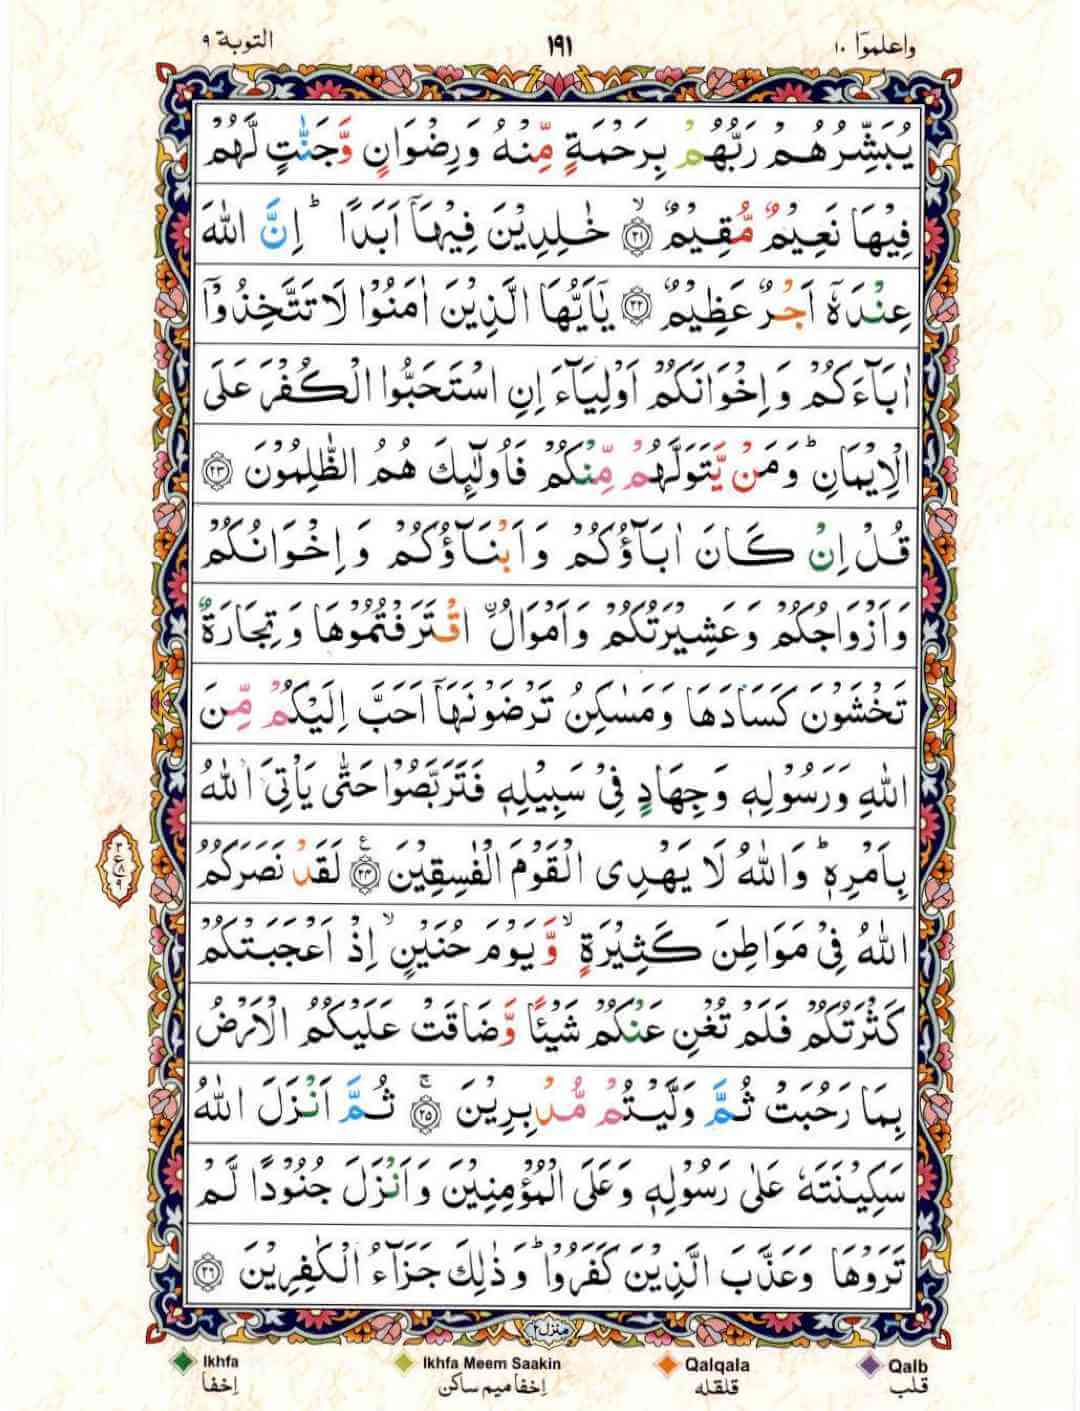 التوبة ٩
١٩١
واعلموٓا ١٠
يُبَشِّرُهُمْ رَبُّهُمْ بِرَحْمَةٍ مِّنْهُ وَرِضْوَانٍ وَّجَنّٰتٍ لَّهُمْ
فِيْهَا نَعِيْمٌ مُّقِيْمٌ ۙ﴿۲۱﴾ خٰلِدِيْنَ فِيْهَآ اَبَدًا ؕ اِنَّ اللّٰهَ
عِنْدَهٗٓ اَجْرٌ عَظِيْمٌ ﴿۲۲﴾ يٰٓاَيُّهَا الَّذِيْنَ اٰمَنُوْا لَا تَتَّخِذُوْٓا
اٰبَآءَكُمْ وَاِخْوَانَكُمْ اَوْلِيَآءَ اِنِ اسْتَحَبُّوا الْكُفْرَ عَلَى
الْاِيْمَانِ ؕ وَمَنْ يَّتَوَلَّهُمْ مِّنْكُمْ فَاُولٰٓئِكَ هُمُ الظّٰلِمُوْنَ ﴿۲۳﴾
قُلْ اِنْ كَانَ اٰبَآؤُكُمْ وَاَبْنَآؤُكُمْ وَاِخْوَانُكُمْ
وَاَزْوَاجُكُمْ وَعَشِيْرَتُكُمْ وَاَمْوَالُ ۨاقْتَرَفْتُمُوْهَا وَتِجَارَةٌ
تَخْشَوْنَ كَسَادَهَا وَمَسٰكِنُ تَرْضَوْنَهَآ اَحَبَّ اِلَيْكُمْ مِّنَ
اللّٰهِ وَرَسُوْلِهٖ وَجِهَادٍ فِيْ سَبِيْلِهٖ فَتَرَبَّصُوْا حَتّٰى يَاْتِيَ اللّٰهُ
بِاَمْرِهٖ ؕ وَاللّٰهُ لَا يَهْدِى الْقَوْمَ الْفٰسِقِيْنَ ۧ﴿۲۴﴾ لَقَدْ نَصَرَكُمُ
٣ ع ٨ ٩
اللّٰهُ فِيْ مَوَاطِنَ كَثِيْرَةٍ ۙ وَّيَوْمَ حُنَيْنٍ ۙ اِذْ اَعْجَبَتْكُمْ
كَثْرَتُكُمْ فَلَمْ تُغْنِ عَنْكُمْ شَيْـًٔا وَّضَاقَتْ عَلَيْكُمُ الْاَرْضُ
بِمَا رَحُبَتْ ثُمَّ وَلَّيْتُمْ مُّدْبِرِيْنَ ۚ﴿۲۵﴾ ثُمَّ اَنْزَلَ اللّٰهُ
سَكِيْنَتَهٗ عَلٰى رَسُوْلِهٖ وَعَلَى الْمُؤْمِنِيْنَ وَاَنْزَلَ جُنُوْدًا لَّمْ
تَرَوْهَا وَعَذَّبَ الَّذِيْنَ كَفَرُوْا ؕ وَذٰلِكَ جَزَآءُ الْكٰفِرِيْنَ ﴿۲۶﴾
منزل ٢
Ikhfa
Ikhfa Meem Saakin
Qalqala
Qalb
اِخفا
اِخفا میم ساکن
قلقله
قلب